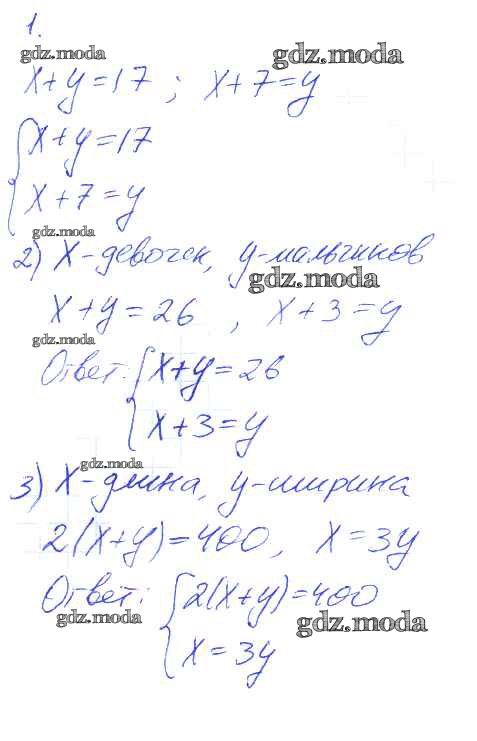 1.
gdz.moda gdz.moda
x+y=17 ; x+7=y
{x+y=17
x+7=y
gdz.moda
2) x-девочек, y-мальчиков
gdz.moda
x+y=26 , x+3=y
gdz.moda
Ответ: {x+y=26
x+3=y
gdz.moda
3) x-длина, y-ширина
2(x+y)=400, x=3y
Ответ: {2(x+y)=400
gdz.moda gdz.moda
x=3y